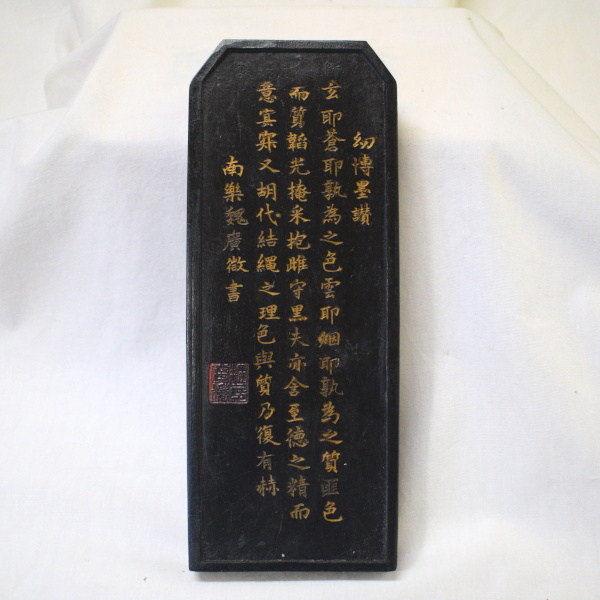 幼博墨讚
玄耶蒼耶孰為之色雲耶烟耶孰為之質匪色
而質韜光掩采抱雌守黑夫亦含至德之精而
意寞寐又胡代結繩之理色與質乃復有赫
南樂魏廣微書